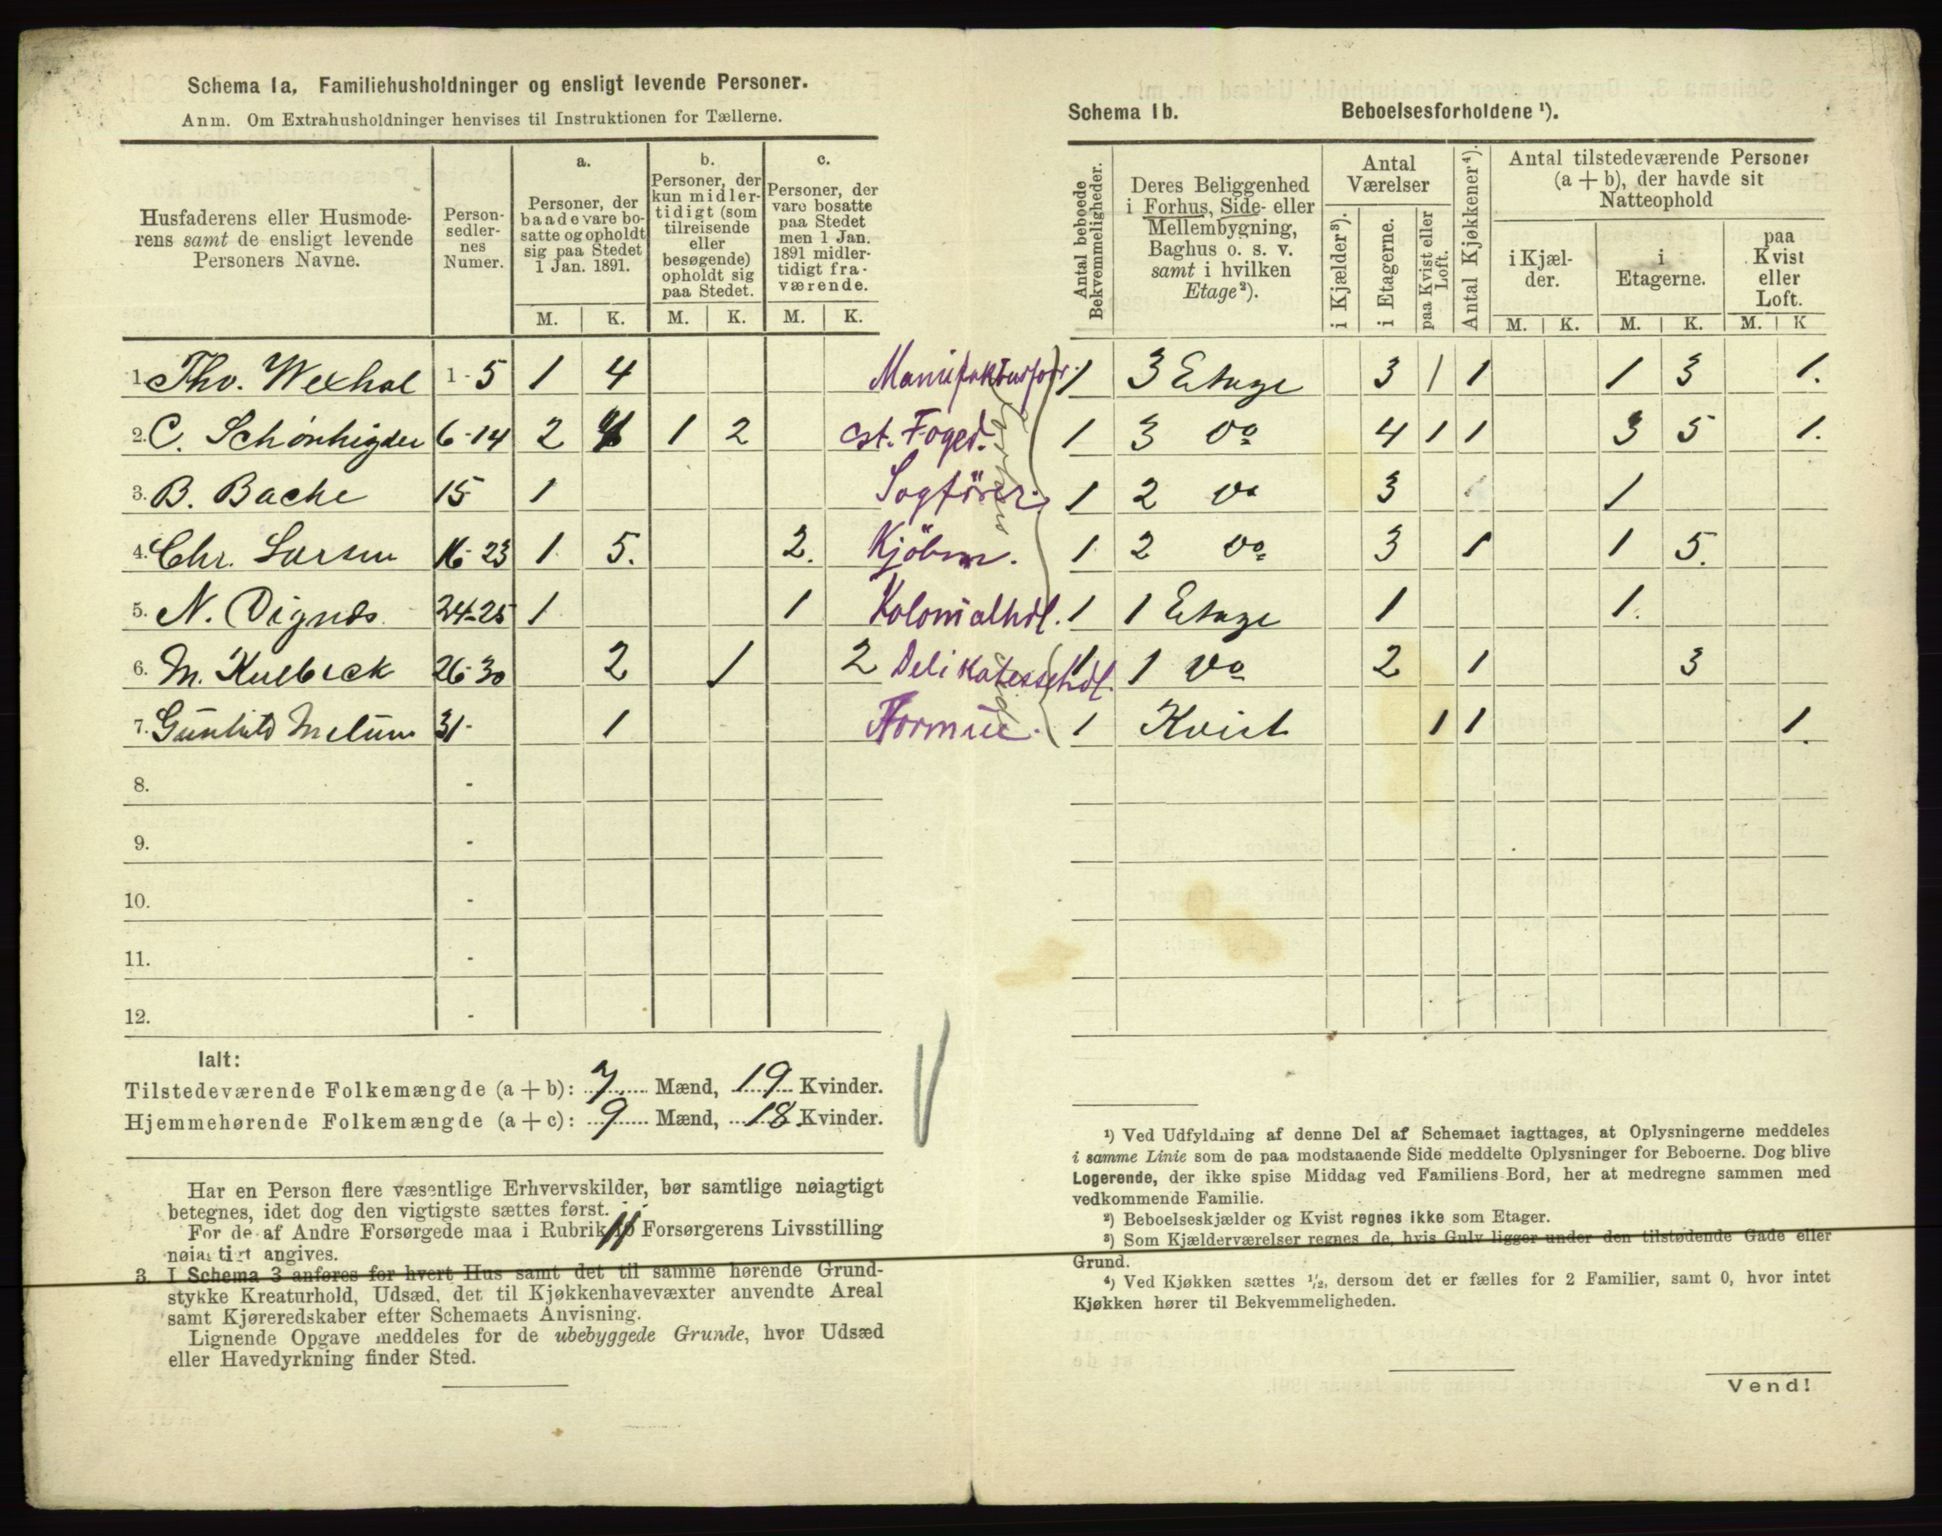 Schema 1a. Familiehusholdninger og ensligt levende Personer.
Anm. Om Extrahusholdninger henvises til Instruktionen for Tællerne.
Husfaderens eller Husmoderens samt de ensligt levende Personers Navne.
Personsedlernes Numer.
a. Personer, der baade vare bosatte og opholdt sig paa Stedet 1 Jan. 1891.
b. Personer, der kun midlertidigt (som tilreisende eller besøgende) opholdt sig paa Stedet.
c. Personer, der vare bosatte paa Stedet men 1 Jan. 1891 midlertidigt fraværende.
M. K. M. K. M. K.
1. Tho. Wexhal 1-5 1 4 Manufakturforr.
2. C. Schönhigder 6-14 2 4 1 2 cst. Foged.
3. B. Bache 15 1 Sagförer.
4. Chr. Larsen 16-23 1 5. 2. Kjöbm.
5. N. Vignds 24-25 1 1 Kolonialhdl.
6. M. Kulbeck 26-30 2 1 2 Delikatessehdl.
7. Gunhild Melum 31- 1 Formue.
8. -
9. -
10. -
11. -
12. -
Ialt:
Tilstedeværende Folkemængde (a + b): 7 Mænd, 19 Kvinder.
Hjemmehørende Folkemængde (a + c): 9 Mænd, 18 Kvinder.
Har en Person flere væsentlige Erhvervskilder, bør samtlige nøiagtigt
betegnes, idet dog den vigtigste sættes først.
For de af Andre Forsørgede maa i Rubrik 11 Forsørgerens Livsstilling
nøiagtigt angives.
3. I Schema 3 anføres for hvert Hus samt det til samme hørende Grund-
stykke Kreaturhold, Udsæd, det til Kjøkkenhavevæxter anvendte Areal
samt Kjøreredskaber efter Schemaets Anvisning.
Lignende Opgave meddeles for de ubebyggede Grunde, hvor Udsæd
eller Havedyrkning finder Sted.
Schema 1b. Beboelsesforholdene ¹).
Antal beboede Bekvemmeligheder.
Deres Beliggenhed i Forhus, Side- eller Mellembygning, Baghus o. s. v. samt i hvilken Etage²).
Antal Værelser
i Kjælder³).
i Etagerne.
paa Kvist eller Loft.
Antal Kjøkkener⁴).
Antal tilstedeværende Personer (a + b), der havde sit Natteophold
i Kjælder.
i Etagerne.
paa Kvist eller Loft.
M. K. M. K. M. K
1 3 Etage 3 1 1 1 3 1.
1 3 do 4 1 1 3 5 1.
1 2 do 3 1
1 2 do 3 1 1 5.
1 1 Etage 1 1.
1 1 do 2 1 3
1 Kvist 1 1 1.
¹) Ved Udfyldning af denne Del af Schemaet iagttages, at Oplysningerne meddeles
i samme Linie som de paa modstaaende Side meddelte Oplysninger for Beboerne. Dog blive
Logerende, der ikke spise Middag ved Familiens Bord, her at medregne sammen med
vedkommende Familie.
²) Beboelseskjælder og Kvist regnes ikke som Etager.
³) Som Kjælderværelser regnes de, hvis Gulv ligger under den tilstødende Gade eller
Grund.
⁴) Ved Kjøkken sættes ¹/₂, dersom det er fælles for 2 Familier, samt 0, hvor intet
Kjøkken hører til Bekvemmeligheden.
Vend!